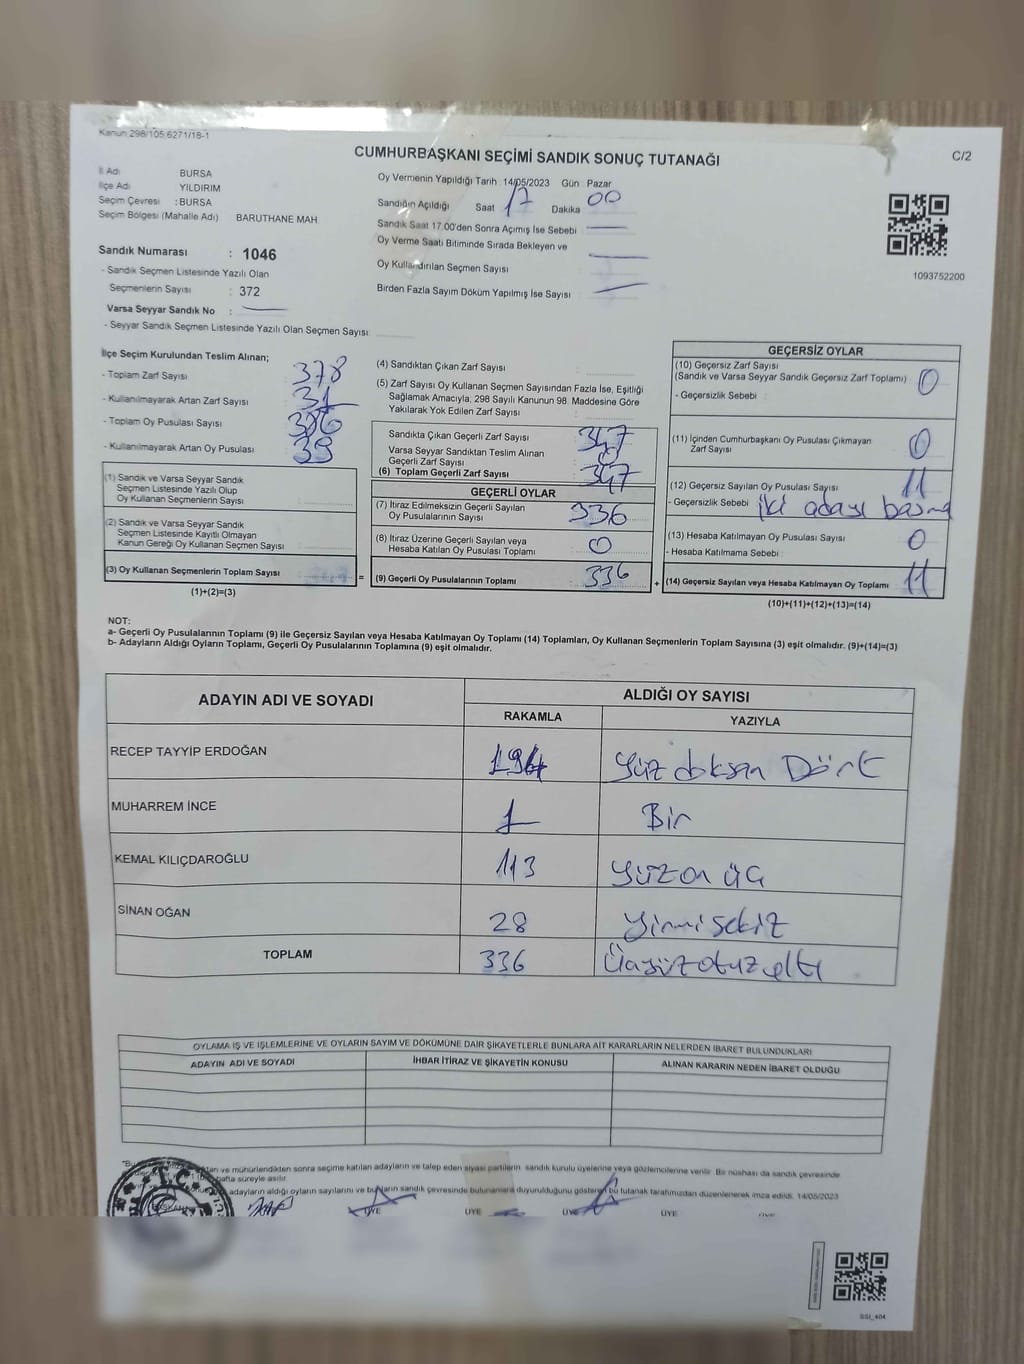 Kanun 298/105 6271/18-1
CUMHURBAŞKANI SEÇİMİ SANDIK SONUÇ TUTANAĞI
C/2
İl Adı BURSA
İlçe Adı YILDIRIM
Seçim Çevresi : BURSA
Seçim Bölgesi (Mahalle Adı) BARUTHANE MAH.
Sandık Numarası : 1046
- Sandık Seçmen Listesinde Yazılı Olan
Seçmenlerin Sayısı : 372
Varsa Seyyar Sandık No :
- Seyyar Sandık Seçmen Listesinde Yazılı Olan Seçmen Sayısı:
Oy Vermenin Yapıldığı Tarih : 14/05/2023 Gün Pazar
Sandığın Açıldığı Saat 17 Dakika 00
Sandık Saat 17.00'den Sonra Açımış İse Sebebi
Oy Verme Saati Bitiminde Sırada Bekleyen ve
Oy Kullandırılan Seçmen Sayısı
Birden Fazla Sayım Döküm Yapılmış İse Sayısı
1093752200
İlçe Seçim Kurulundan Teslim Alınan;
- Toplam Zarf Sayısı 378
- Kullanılmayarak Artan Zarf Sayısı 31
- Toplam Oy Pusulası Sayısı
- Kullanılmayarak Artan Oy Pusulası 39
(1) Sandık ve Varsa Seyyar Sandık
Seçmen Listesinde Yazılı Olup
Oy Kullanan Seçmenlerin Sayısı
(2) Sandık ve Varsa Seyyar Sandık
Seçmen Listesinde Kayıtlı Olmayan
Kanun Gereği Oy Kullanan Seçmen Sayısı
(3) Oy Kullanan Seçmenlerin Toplam Sayısı =
(1)+(2)=(3)
(4) Sandıktan Çıkan Zarf Sayısı :
(5) Zarf Sayısı Oy Kullanan Seçmen Sayısından Fazla İse, Eşitliği
Sağlamak Amacıyla; 298 Sayılı Kanunun 98. Maddesine Göre
Yakılarak Yok Edilen Zarf Sayısı :
Sandıkta Çıkan Geçerli Zarf Sayısı 347
Varsa Seyyar Sandıktan Teslim Alınan
Geçerli Zarf Sayısı 0
(6) Toplam Geçerli Zarf Sayısı 347
GEÇERLİ OYLAR
(7) İtiraz Edilmeksizin Geçerli Sayılan
Oy Pusulalarının Sayısı 336
(8) İtiraz Üzerine Geçerli Sayılan veya
Hesaba Katılan Oy Pusulası Toplamı 0
(9) Geçerli Oy Pusulalarının Toplamı 336 +
GEÇERSİZ OYLAR
(10) Geçersiz Zarf Sayısı
(Sandık ve Varsa Seyyar Sandık Geçersiz Zarf Toplamı) 0
- Geçersizlik Sebebi :
(11) İçinden Cumhurbaşkanı Oy Pusulası Çıkmayan
Zarf Sayısı 0
(12) Geçersiz Sayılan Oy Pusulası Sayısı 11
- Geçersizlik Sebebi : iki adayı basma
(13) Hesaba Katılmayan Oy Pusulası Sayısı 0
- Hesaba Katılmama Sebebi :
(14) Geçersiz Sayılan veya Hesaba Katılmayan Oy Toplamı 11
(10)+(11)+(12)+(13)=(14)
NOT:
a- Geçerli Oy Pusulalarının Toplamı (9) ile Geçersiz Sayılan veya Hesaba Katılmayan Oy Toplamı (14) Toplamları, Oy Kullanan Seçmenlerin Toplam Sayısına (3) eşit olmalıdır. (9)+(14)=(3)
b- Adayların Aldığı Oyların Toplamı, Geçerli Oy Pusulalarının Toplamına (9) eşit olmalıdır.
ADAYIN ADI VE SOYADI ALDIĞI OY SAYISI
RAKAMLA YAZIYLA
RECEP TAYYİP ERDOĞAN 194 Yüz doksan Dört
MUHARREM İNCE 1 Bir
KEMAL KILIÇDAROĞLU 113 Yüzon üç
SİNAN OĞAN 28 Yirmi sekiz
TOPLAM 336 Üçyüzotuzaltı
OYLAMA İŞ VE İŞLEMLERİNE VE OYLARIN SAYIM VE DÖKÜMÜNE DAİR ŞİKAYETLERLE BUNLARA AİT KARARLARIN NELERDEN İBARET BULUNDUKLARI
ADAYIN ADI VE SOYADI İHBAR İTİRAZ VE ŞİKAYETİN KONUSU ALINAN KARARIN NEDEN İBARET OLDUĞU
ve mühürlendikten sonra seçime katılan adayların ve talep eden siyasi partilerin sandık kurulu üyelerine veya gözlemcilerine verilir. Bir nüshası da sandık çevresinde
hafta süreyle asılır.
adayların aldığı oyların sayılarını ve bunların sandık çevresinde bulunanlara duyurulduğunu gösteren bu tutanak tarafımızdan düzenlenerek imza edildi. 14/05/2023
T.C.
BAŞKAN ÜYE ÜYE ÜYE ÜYE ÜYE
SSI_404